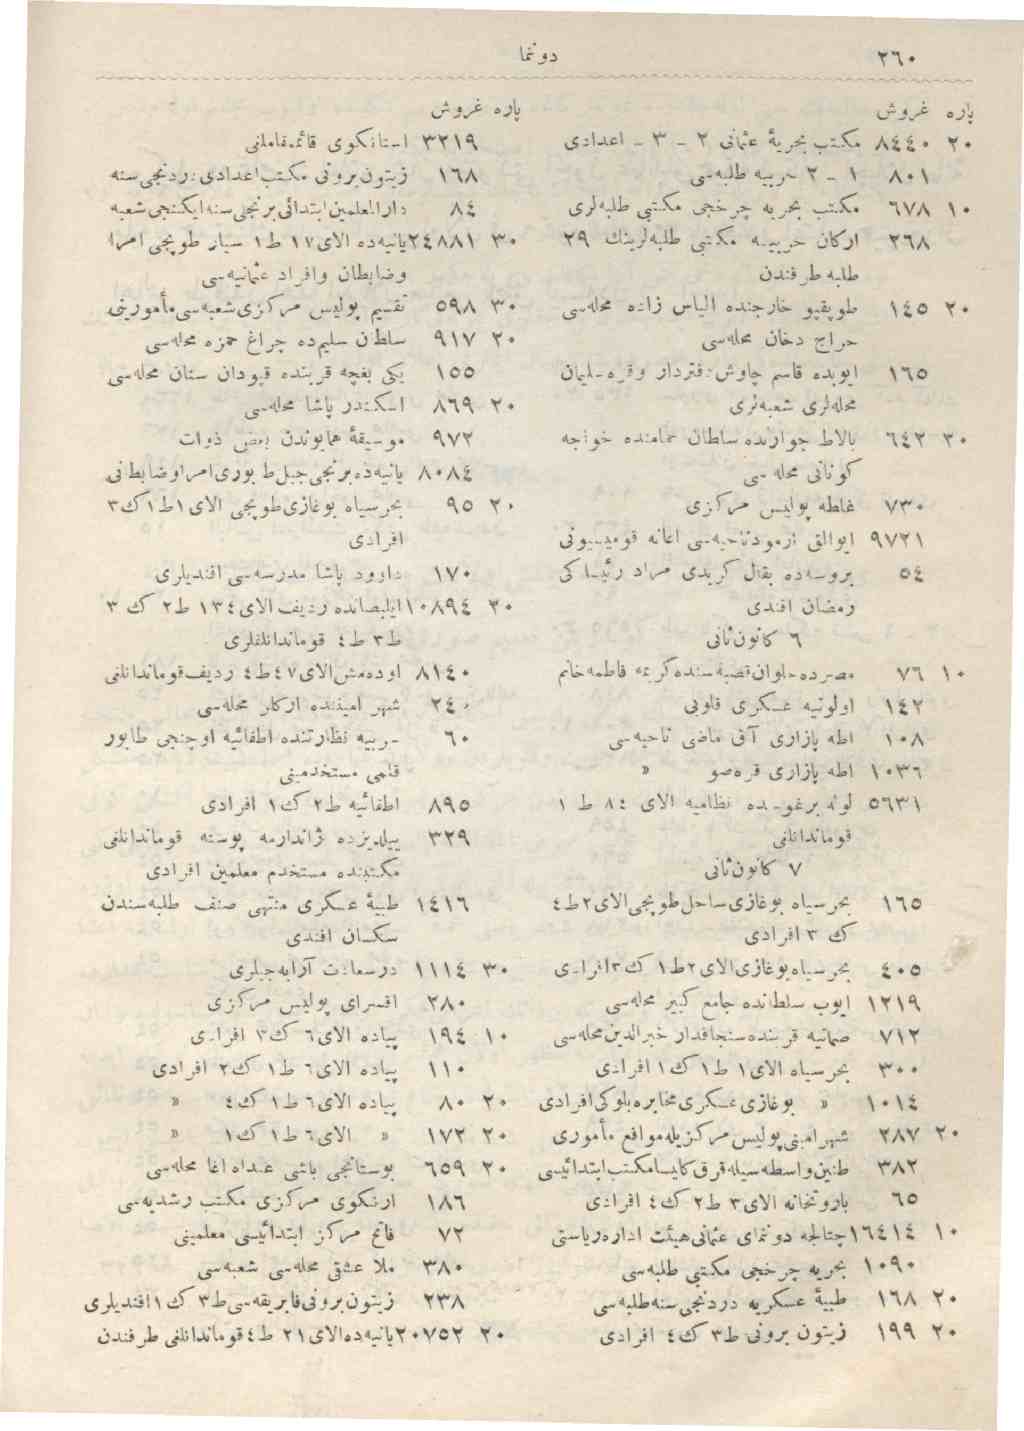 ٢٦٠
دونما
پاره غروش
٢٠ ٨٤٤٠ مكتب بحریهٔ عثمانی ٢ ـ ٣ ـ اعدادی
٨٠١ ١ ـ ٢ حربیه طلبه‌سی
١٠ ٦٧٨ مكتب بحریه چرخجی مكتبی طلبه‌لری
٢٦٨ اركان حربیه مكتبی طلبه‌لرینك ٢٩
طلبه طرفندن
٢٠ ١٤٥ طوپقپو خارجنده الیاس زاده محله‌سی
حراج دخان محله‌سی
١٦٥ ایوبده قاسم چاوش دفتردار وقره‌سلیمان
محله‌لری شعبه‌لری
٣٠ ٦٤٢ بالاط جوارنده سلطان حمامنده خواجه
محله سی
٧٣٠ غلطه پولیس مركزی
٩٧٢١ ایوالق ناحیه‌سی اعانه قومیسیونی
٥٤ بروسه‌ده بقال كریدی مراد رئیسك اكی
رمضان افندی
٦ كانون‌ثانی
١٠ ٧٦ مصرده حلوان‌قصبه‌سنده‌كریمه فاطمه‌خانم
١٤٢ اولوتیه عسكری قلوبی
١٠٨ اطه پازاری آق ماضی ناحیه‌سی
١٠٣٦ اطه پازاری قره‌صو »
٥٦٣١ لوله‌برغوسده نظامیه الای ٨٤ ط ١
قوماندانلغی
٧ كانون‌ثانی
١٦٥ بحرسیاه بوغازی‌ساحل‌طوپجی‌الای٢ط٤
ك ٣ افرادی
٤٠٥ بحرسیاه‌بوغازی‌الای٢ط١ ك٣افرادی
١٢١٩ ایوب سلطانده جامع كبیر محله‌سی
٧١٢ صماتیه قربنده‌سنجاقدار خیرالدین‌محله‌سی
٣٠٠ بحرسیاه الای١ ط١ ك١ افرادی
١٠١٤ » بوغازی‌عسكری‌مخابره‌بلوكی‌افرادی
٢٠ ٢٨٧ شهرامینی‌پولیس‌مركزیله‌مواقع مأموری
٣٨٢ طنین‌واسطه‌سیله‌قرق‌كلیسامكتب‌ابتدائیسی
٦٥ باروتخانه الای٣ ط٢ ك٤ افرادی
١٠ ١٦٤١٤چتالجه دونمای عثمانی‌هیئت اداره‌ریاستی
١٠٩٠ بحریه چرخجی مكتبی طلبه‌سی
٢٠ ١٦٨ طبیهٔ عسكریه دردنجی‌سنه‌طلبه‌سی
٢٠ ١٩٩ زیتون برونی ط٣ ك٤ افرادی
پاره غروش
٣٢١٩ استانكوی قائمقاملغی
١٦٨ زیتون‌برونی مكتب‌اعدادی‌دردنجی‌سنه
٨٤ دارالمعلمین‌ابتدائی‌برنجی‌سنه‌ایكنجی‌شعبه
٣٠ ٢٤٨٨١یانیه‌ده الای١٧ ط١ سیار طوپجی امرا
وضابطان وافراد عثمانیه‌سی
٣٠ ٥٩٨ تقسیم پولیس مركزی‌شعبه‌سی‌مأمورینی
٢٠ ٩١٧ سلطان سلیمده چراغ حمزه محله‌سی
١٥٥ یكی بغچه قربنده قپودان سنان محله‌سی
٢٠ ٨٦٩ اسكندر پاشا محله‌سی
٩٧٢ موسیقهٔ همایوندن بعض ذوات
٨٠٨٤ یانیه‌ده‌برنجی‌جبل‌ط بوری‌امراوضابطانی
٢٠ ٩٥ بحرسیاه بوغازی‌طوپجی الای١ط١ك٣
افرادی
١٧٠ داوود پاشا مدرسه‌سی افندیلری
٢٠ ١٠٨٩٤ایلبصانده ردیف‌الای١٣٤ ط٢ ك ٣
ط٣ ط٤ قوماندانلقلری
٨١٤٠ اوده‌مش‌الای٤٧ط٤ ردیف‌قوماندانلغی
٢٤٠ شهر امیننده محله‌سی
٦٠ حربیه نظارتنده اطفائیه اوچنجی طابور
قلمی مستخدمینی
٨٩٥ اطفائیه ط٢ ك١ افرادی
٣٢٩ ییلدیزده ژاندارمه پوسته قوماندانلغی
مكتبنده مستخدم معلمین افرادی
١٤١٦ طبیهٔ عسكری منتهی صنف طلبه‌سندن
سكسان افندی
٣٠ ١١١٤ درسعادت آرابه‌جیلری
٢٨٠ اقسرای پولیس مركزی
١٠ ١٩٤ پیاده الای٦ ك٣ افرادی
١١٠ پیاده الای٦ ط١ ك٢ افرادی
٢٠ ٨٠ پیاده الای٦ ط١ ك٤ »
٢٠ ١٧٢ » الای٦ ط١ ك١ »
٢٠ ٦٥٩ بوستانجی باشی عبدالله اغا محله‌سی
١٨٦ ارنكوی مركزی مكتب رشدیه‌سی
٧٢ فاتح مركز ابتدائیسی معلمینی
٣٨٠ ملا عشقی محله‌سی شعبه‌سی
٢٣٨ زیتون‌برونی‌فابریقه‌سی‌ط٣ ك١افندیلری
٢٠ ٢٠٧٥٢یانیه‌ده‌الای٢١ ط٤قوماندانلغی طرفندن